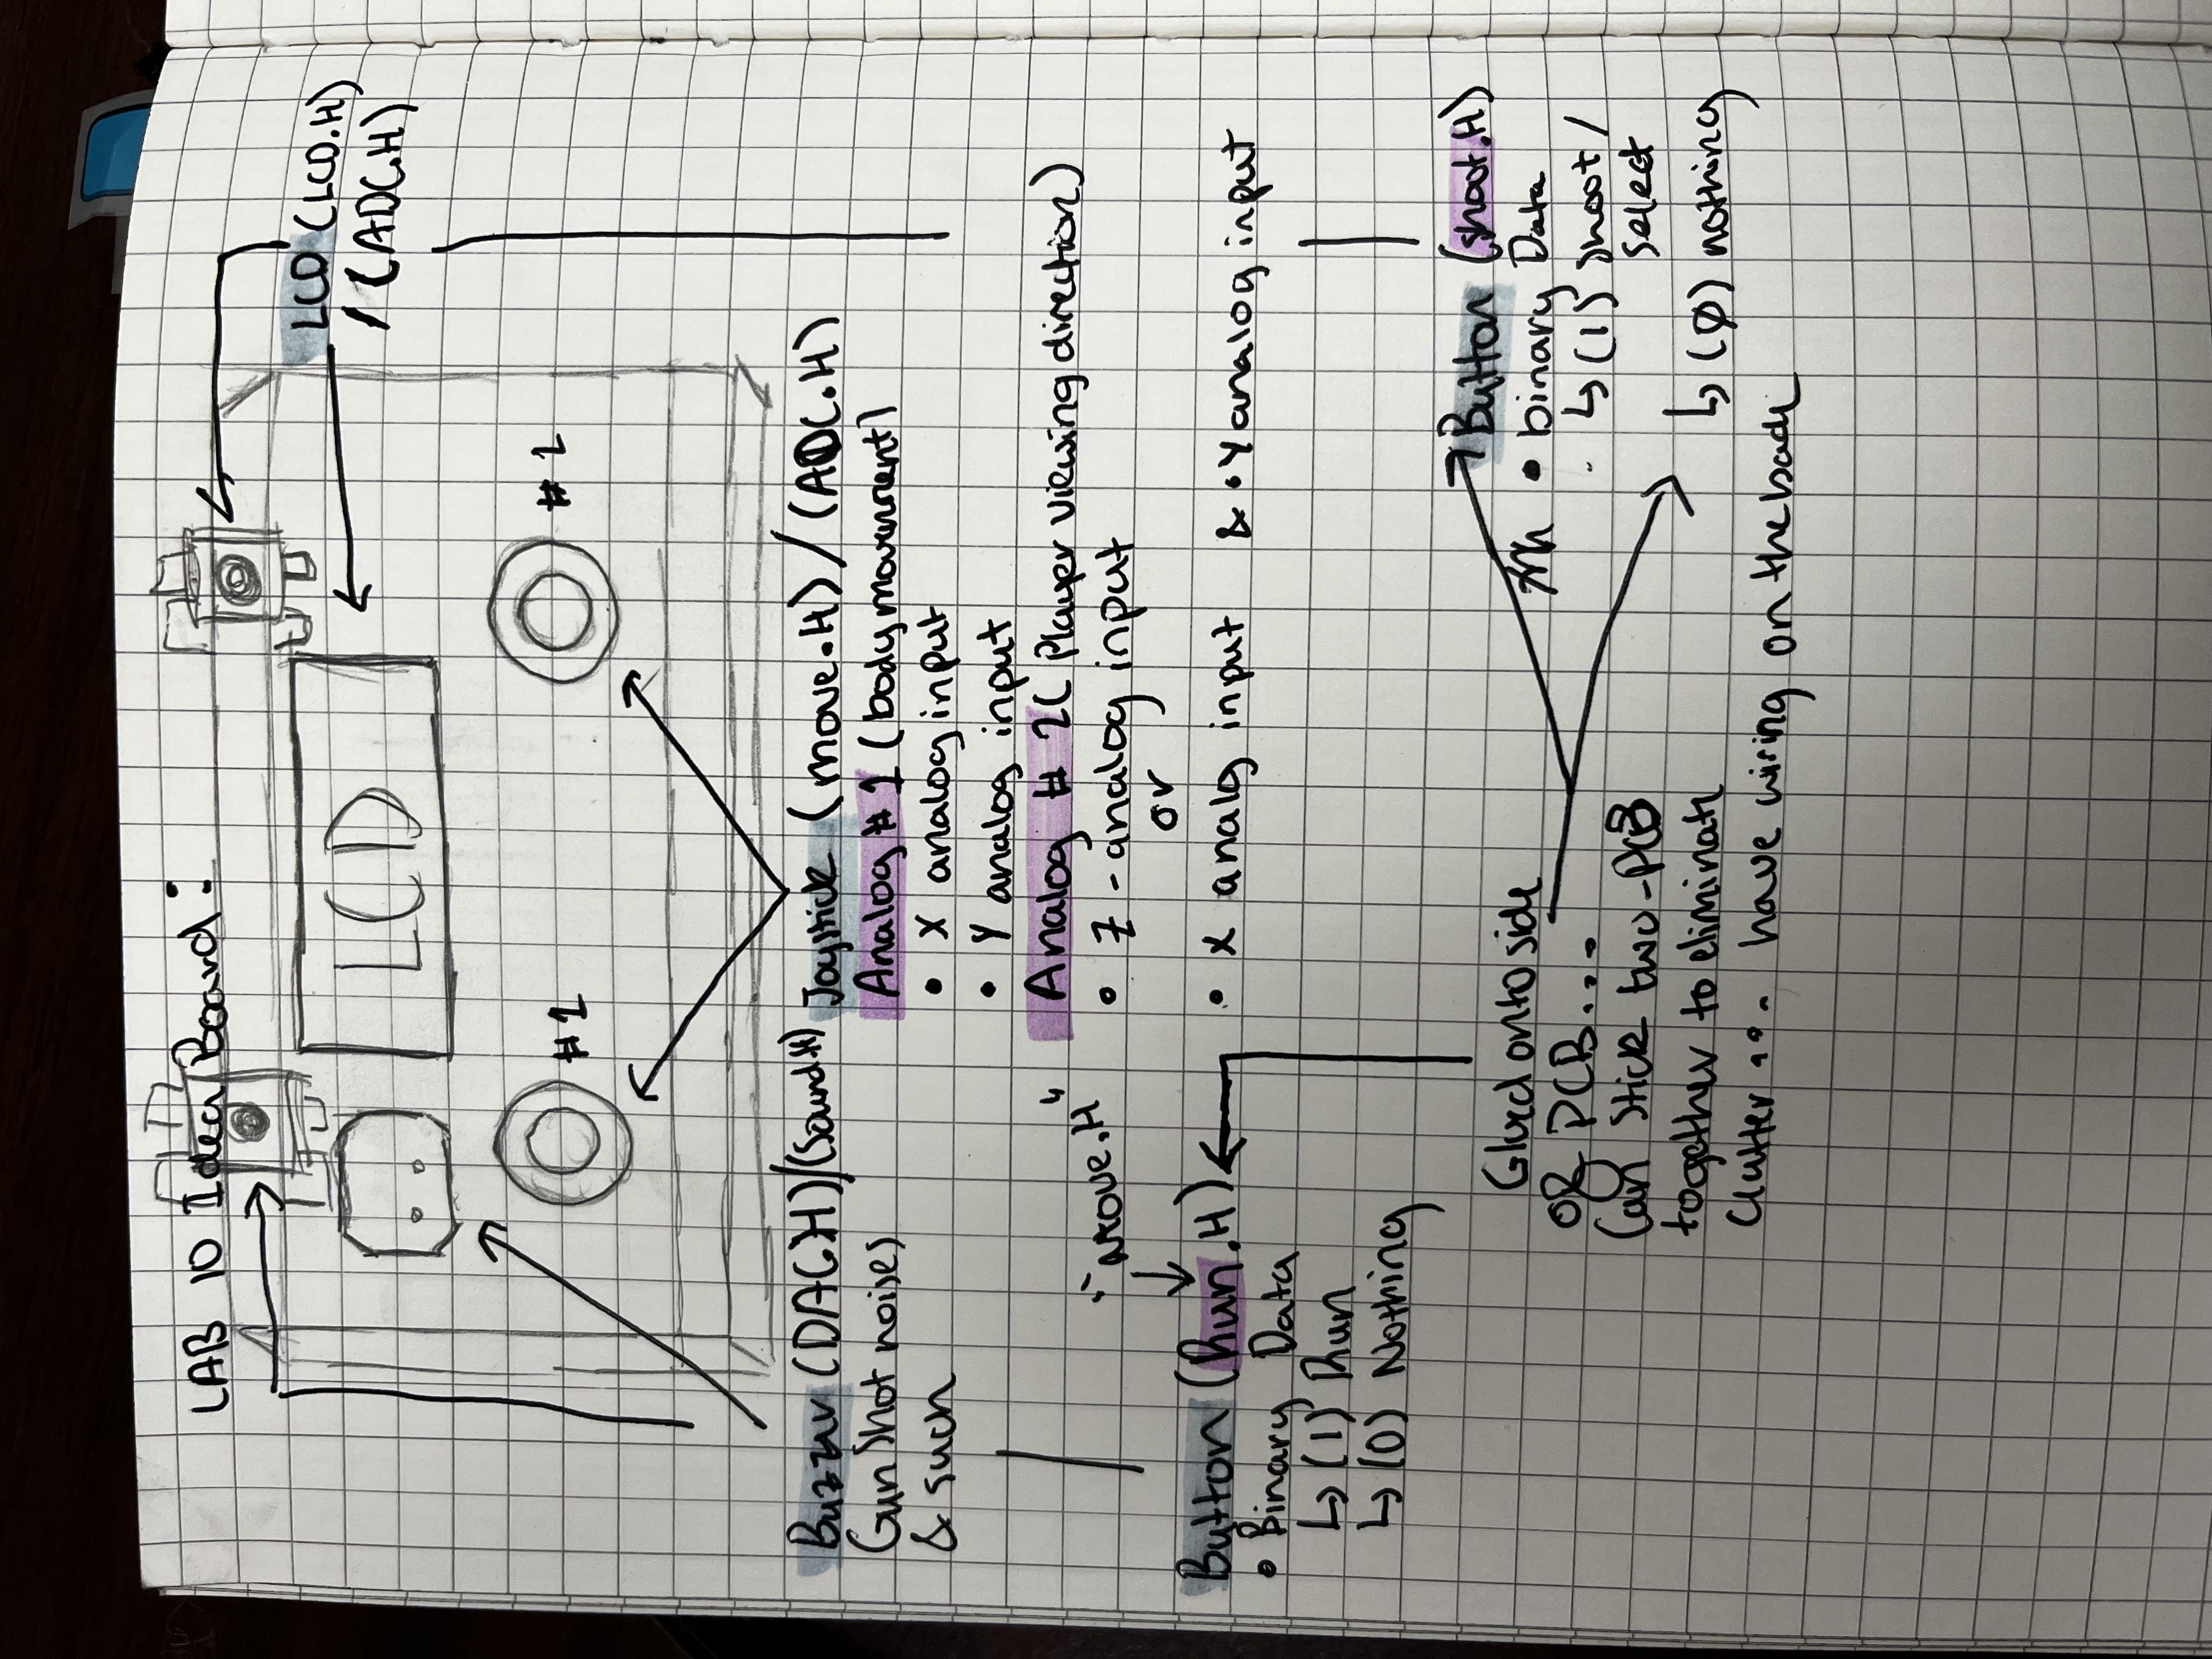 LAB 10 Idea Board:
LCD
LCD (LCD.H)
/ (ADC.H)
#1
#2
Buzzer (DAC.H)/(Sound.H)
Gun Shot noises
& such
Joystick (move.H) / (ADC.H)
Analog #1 (body movement)
• X analog input
• Y analog input
Analog # 2( Player viewing direction)
• Z - analog input
or
• X analg input & • Y analog input
"move.H"
Button (Run.H)
• Binary Data
↳ (1) Run
↳ (0) Nothing
Glued onto side
of PCB...
Can Stick two-PCB
together to eliminate
Clutter ... have wiring on the back
Button (shoot.H)
• binary Data
↳ (1) shoot /
select
↳ (0) nothing